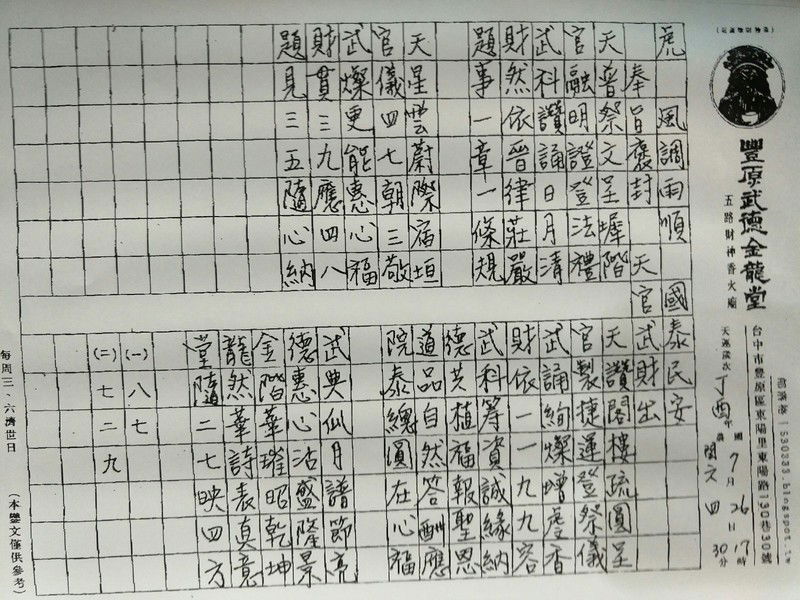 豐原武德金龍堂
五路財神香火廟
台中市豐原區東陽里東陽路130巷30號
部落格 1530333.blogspot.tw
天運歲次丁酉年
國7月26日17時
農閏六 四 30分
虎 風調雨順 國泰民安
奉旨褒封 天官武財出
天普祭文呈墀階
官融明證登法禮
武科讚誦日月清
財然依晉律莊嚴
題事一章一條規
天讚閣樓疏圓呈
官製捷運登祭儀
武誦絢燦增虔香
財依一一九九容
武科籌資誠緣納
德共植福報聖恩
道品自然答酬應
院泰總圓在心福
天星雲蔚際宿垣
官儀四七朝三敬
武燦更能惠心福
財貫三九應四八
題見三五隨心納
武典仙月譜節亮
德惠心沽盛隆景
金階華璀昭乾坤
龍然華詩表真意
堂隨二七映四方
(一)八七
(二)七二九
每周三、六濟世日
(本鑒文僅供參考)